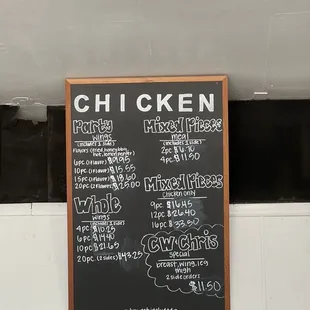 CHICKEN
Party
wings
(includes 1 side)
flavors (fried, honey bbq,
hot, lemon pepper)
6pc (1 flavor) $9.95
10pc (1 flavor) $15.55
15pc (1 flavor) $18.60
20pc (2 flavors) $25.00
Whole
wings
(includes 1 side)
4pc $10.25
6pc $14.40
10pc $21.65
20pc (2 sides) $43.25
Mixed Pieces
meal
(includes 1 side)
2pc $6.70
4pc $11.50
Mixed Pieces
chicken only
9pc $16.45
12pc $26.40
16pc $33.50
CW Chris
special
breast, wing, leg
thigh
2 side orders
$11.50